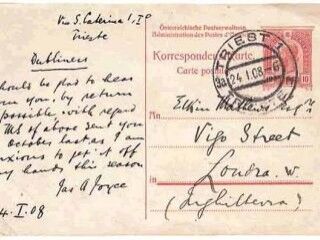 Via S. Caterina 1, I°
Trieste
Dubliners
should be glad to hear
from you, by return
possible, with regard
MS of above sent you
October last as I am
anxious to get it off
my hands this season
Jas A Joyce
4. I. 08
Österreichische Postverwaltung
Korrespondenzkarte
Carte postale
TRIEST 1
24 I 08
10
An
Elkin Mathews Esqre
Vigo Street
Londra. W.
(Inghilterra)